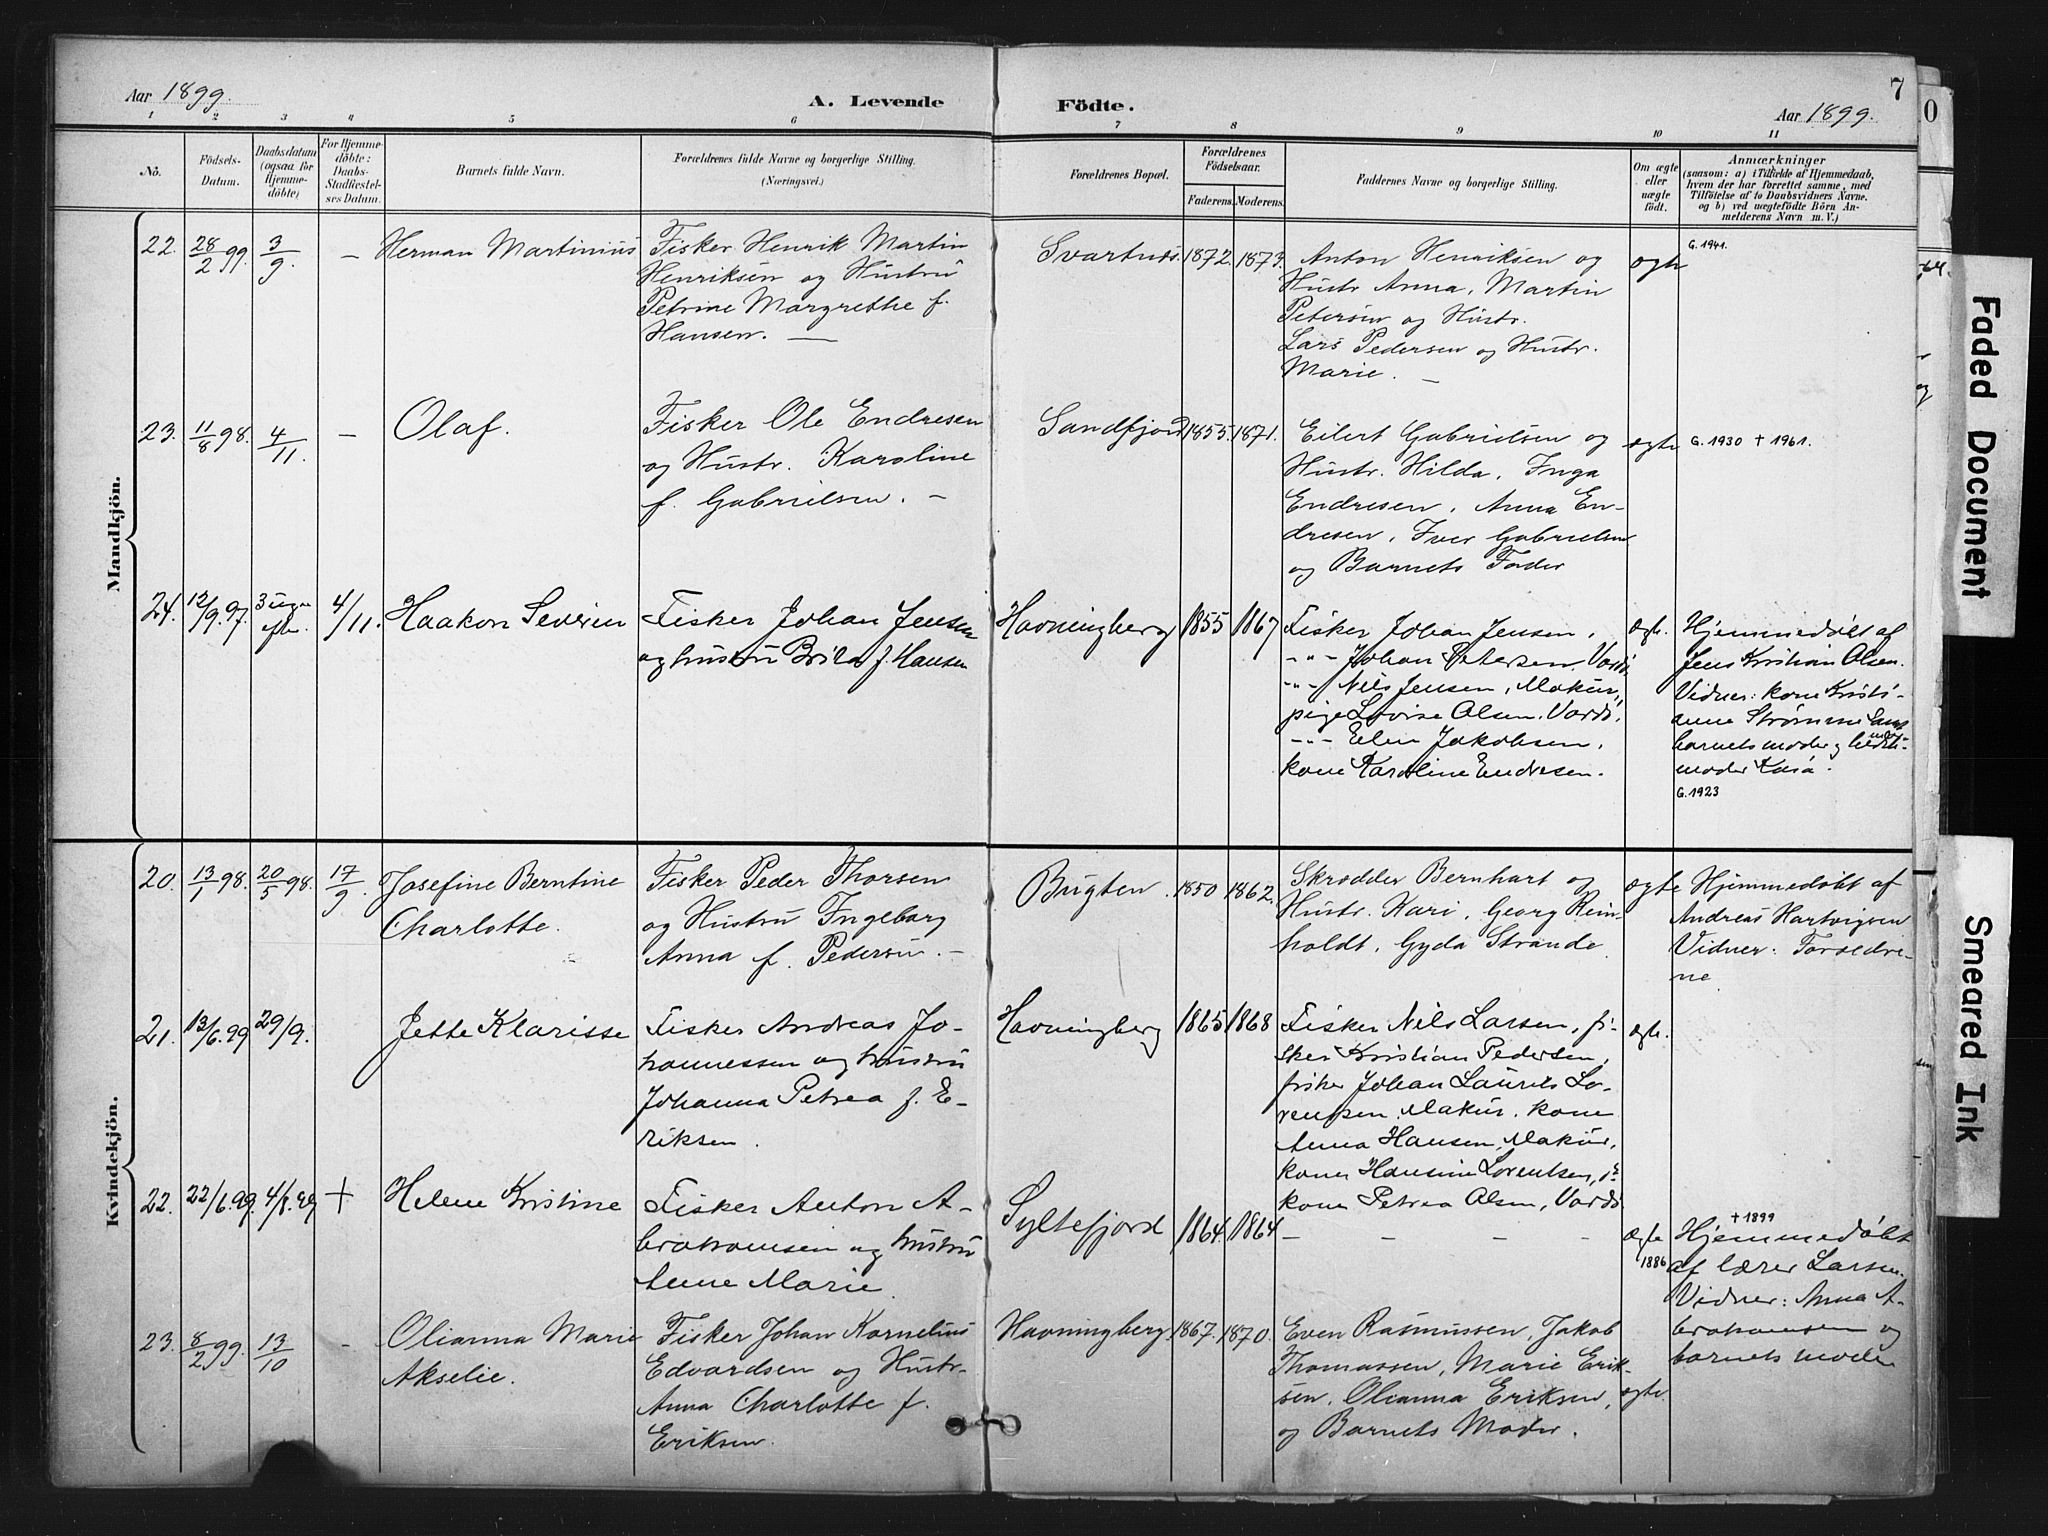 7
Aar 1899.
A. Levende
Födte.
Aar 1899.
1 2 3 4 5 6 7 8 9 10 11
No.
Födsels-
Datum.
Daabsdatum
(ogsaa for
Hjemme-
döbte)
For Hjemme-
döbte:
Daabs-
Stadfæstel-
ses Datum.
Barnets fulde Navn.
Forældrenes fulde Navne og borgerlige Stilling.
(Næringsvei.)
Forældrenes Bopæl.
Forældrenes
Födselsaar.
Faderens.
Moderens.
Faddernes Navne og borgerlige Stilling.
Om ægte
eller
uægte
födt.
Anmærkninger
(saasom: a) i Tilfælde af Hjemmedaab,
hvem der har forrettet samme, med
Tilföielse af to Daabsvidners Navne.
og b) ved uægtefödte Börn An-
melderens Navn m. V.)
Mandkjön.
22.
28/2 99.
3/9.
-
Herman Martinius
Fisker Henrik Martin
Henriksen og Hustru
Petrine Margrethe f.
Hansen. -
Svartnes.
1872.
1873.
Anton Henriksen og
Hustr Anna, Martin
Petersen og Hustr.
Lars Pedersen og Hustr.
Marie. -
ægte
G. 1941.
23.
11/8 98.
4/11.
-
Olaf.
Fisker Ole Endresen
og Hustr. Karoline
f. Gabrielsen. -
Sandfjord
1855.
1871.
Eilert Gabrielsen og
Hustr. Hilda, Inga
Endresen, Anna En-
dresen, Iver Gabrielsen
og Barnets Fader
ægte
G. 1930 + 1961.
24.
12/9.97.
3 uger
efter
4/11.
Haakon Severin
Fisker Johan Jensen
og hustru Brita f. Hansen
Havningberg
1855
1867
Fisker Johan Jensen,
-"- Johan Petersen, Vardö
-"- Nils Jensen, Makur,
pige Lovise Olsen, Vardö,
-"- Elen Jakobsen,
kone Karoline Endresen.
ægte.
Hjemmedøbt af
Jens Kristian Olsen.
Vidner: kone Kristi-
anne Strømme samt
barnets moder og
moder Kaisa.
G. 1923
Kvindekjön.
20.
13/1 98.
20/5 98.
17/9.
Josefine Berntine
Charlotte.
Fisker Peder Thorsen
og Hustru Ingeborg
Anna f. Pedersen. -
Bugten.
1850
1862.
Skrædder Bernhart og
Hustr. Kari, Georg Rein-
holdt, Gyda Strande
ægte
Hjemmedøbt af
Andreas Hartvigsen
Vidner: Forældre-
ne
21.
13/6.99
29/9.
Jette Klarisse
Fisker Andreas Jo-
hannessen og hustru
Johanna Petrea f. E-
riksen.
Havningberg
1865
1868
Fisker Nils Larsen, fi-
sker Kristian Pedersen,
fisker Johan Laurits Lo-
rentsen, Makur, kone
Anna Hansen, Makur,
kone Hansine Lorentsen,
kone Petrea Olsen, Vardö
ægte.
22.
22/6.99.
4/8.99
+
Helene Kristine
Fisker Anton A-
brahamsen og hustru
Anne Marie
Syltefjord
1864.
1864
- - - -
ægte
1886
+ 1899
Hjemmedøbt
af lærer Larsen.
Vidner: Anna A-
brahamsen og
barnets moder
23.
8/2 99.
13/10
-
Olianna Marie
Akselie.
Fisker Johan Kornelius
Edvardsen og Hustr.
Anna Charlotte f.
Eriksen.
Havningberg.
1867.
1870.
Even Rasmussen, Jakob
Thomassen, Marie Erik-
sen, Olianna Eriksen,
og Barnets Moder.
ægte.
Faded Document
Smeared Ink